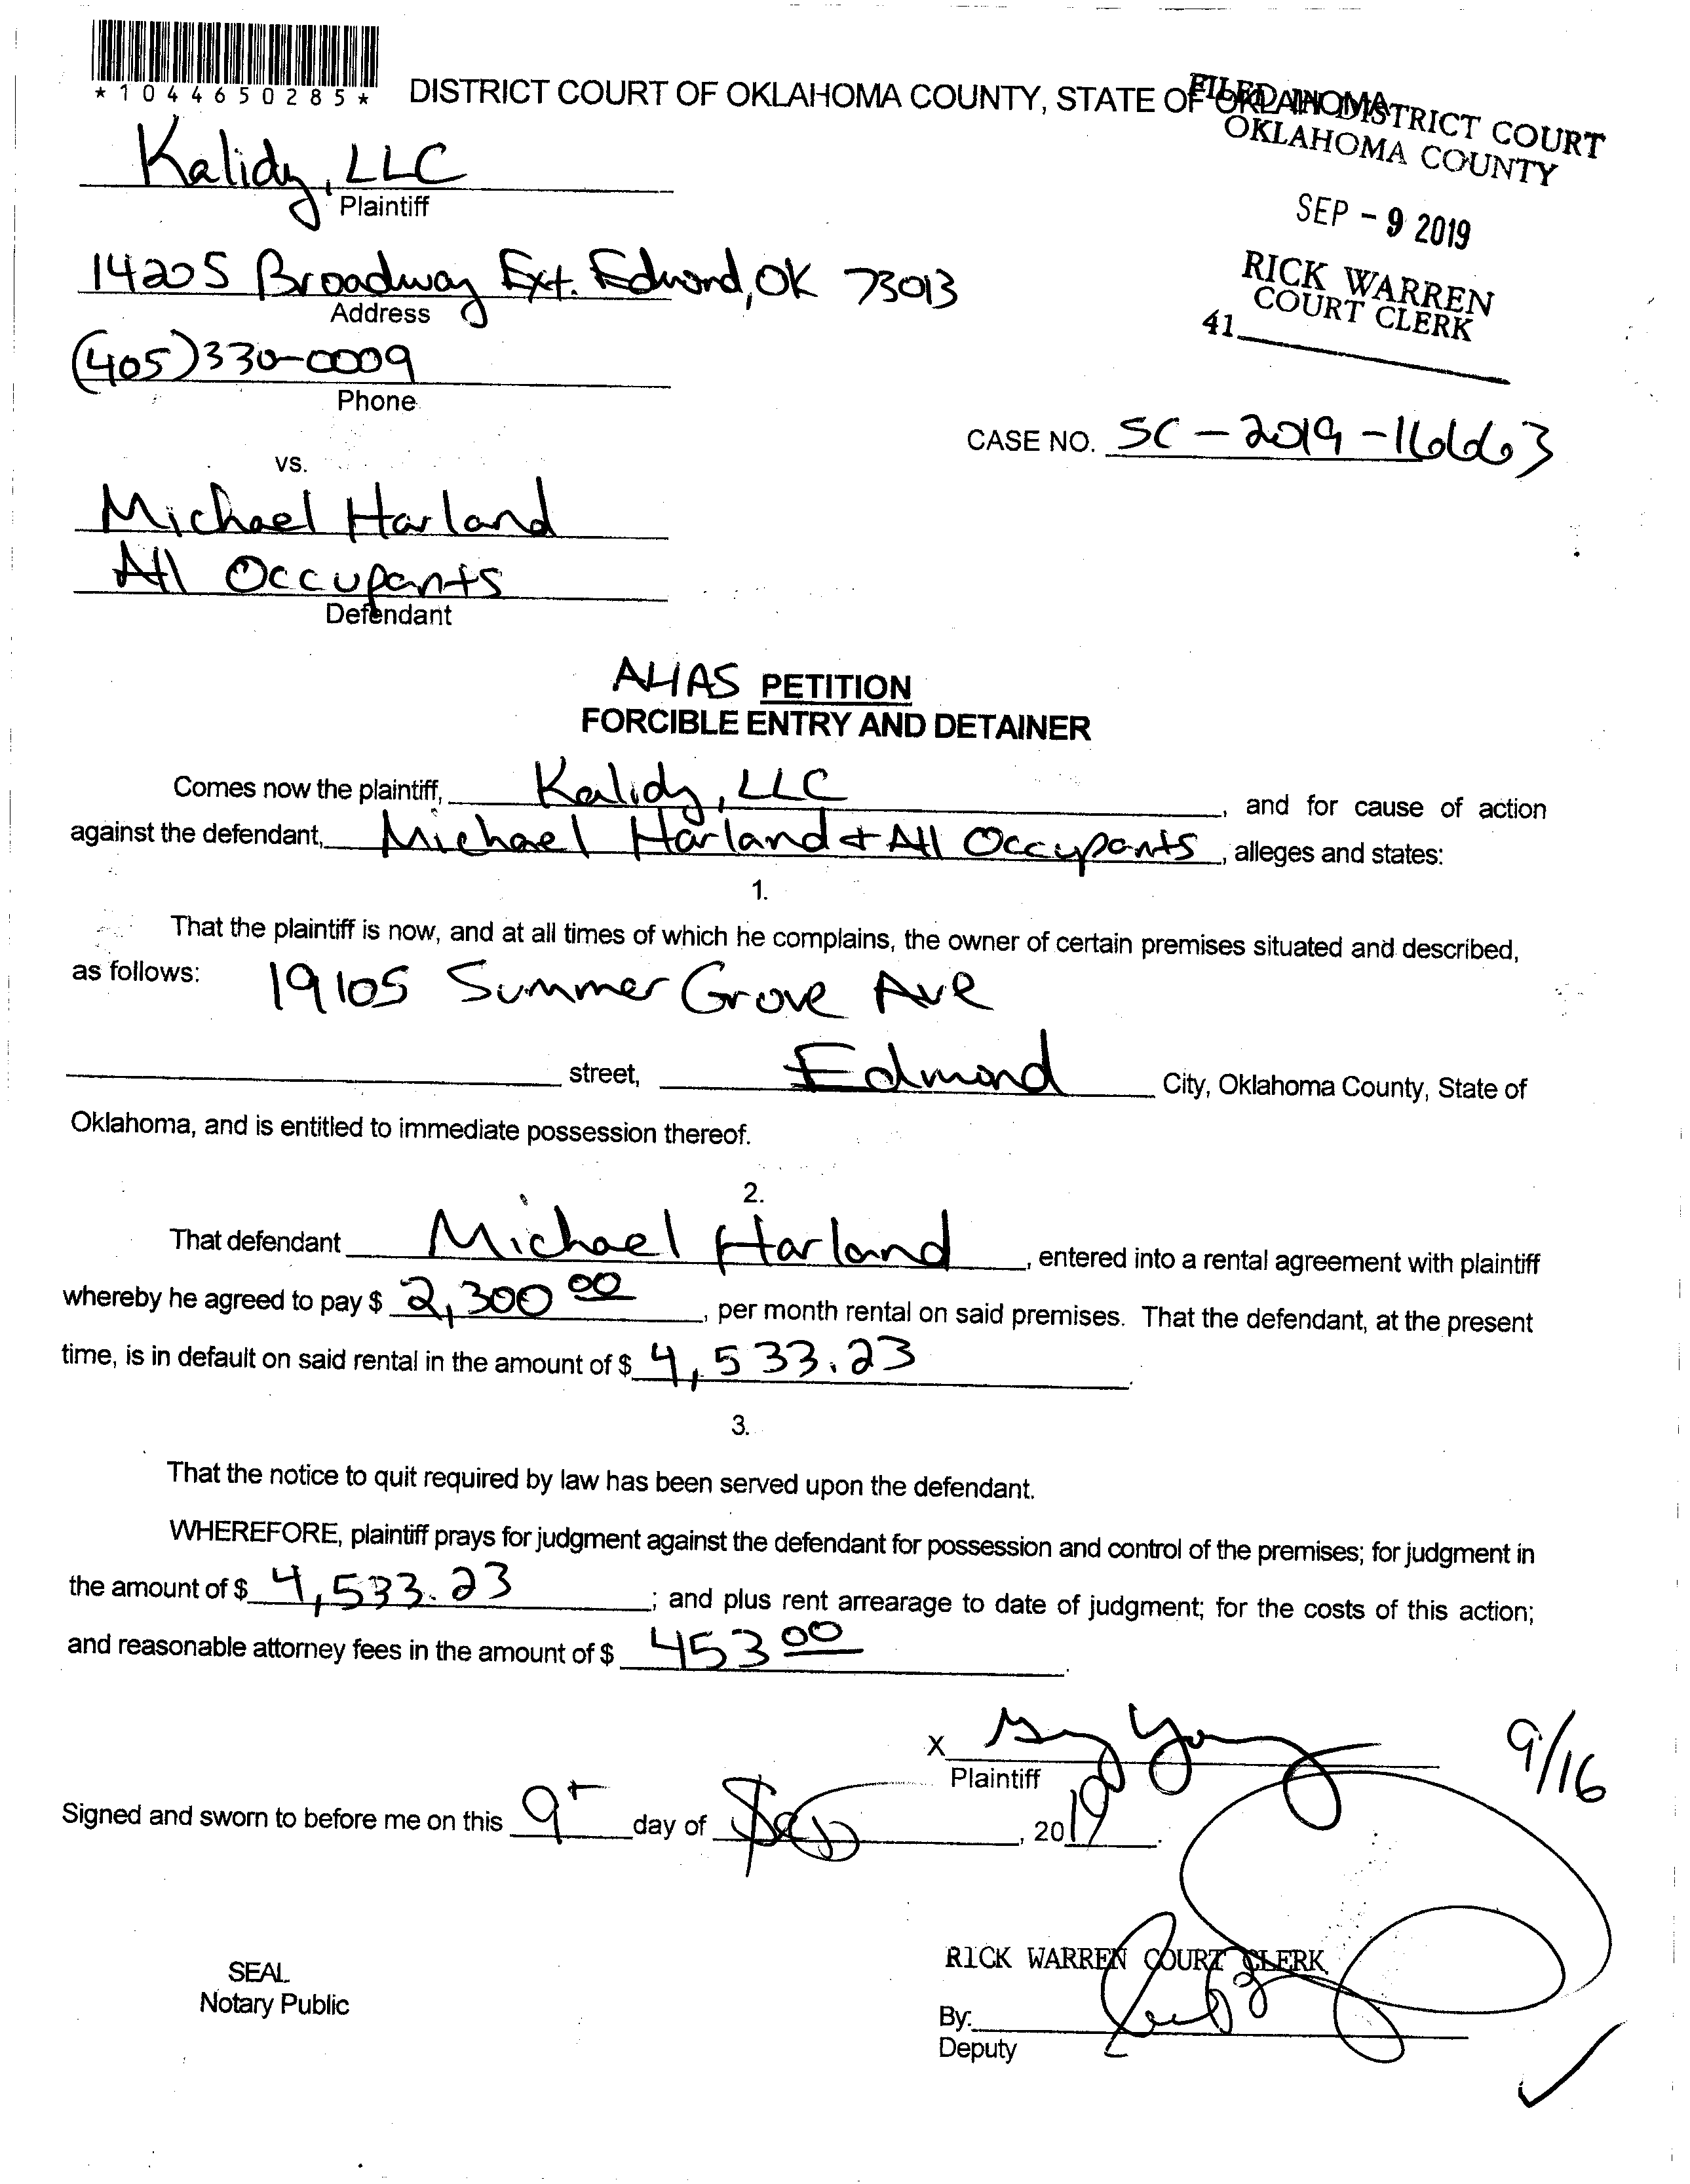 *1044650285*
DISTRICT COURT OF OKLAHOMA COUNTY, STATE OF OKLAHOMA
FILED IN DISTRICT COURT
OKLAHOMA COUNTY
SEP - 9 2019
RICK WARREN
COURT CLERK
41
Kalidy, LLC
Plaintiff
14205 Broadway Ext. Edmond, OK 73013
Address
(405) 330-0009
Phone
CASE NO. SC-2019-16663
vs.
Michael Harland
All Occupants
Defendant
ALIAS PETITION
FORCIBLE ENTRY AND DETAINER
Comes now the plaintiff, Kalidy, LLC, and for cause of action
against the defendant, Michael Harland + All Occupants, alleges and states:
1.
That the plaintiff is now, and at all times of which he complains, the owner of certain premises situated and described,
as follows: 19105 Summer Grove Ave
street, Edmond City, Oklahoma County, State of
Oklahoma, and is entitled to immediate possession thereof.
2.
That defendant Michael Harland, entered into a rental agreement with plaintiff
whereby he agreed to pay $ 2,300 00, per month rental on said premises. That the defendant, at the present
time, is in default on said rental in the amount of $ 4,533.23.
3.
That the notice to quit required by law has been served upon the defendant.
WHEREFORE, plaintiff prays for judgment against the defendant for possession and control of the premises; for judgment in
the amount of $ 4,533.23; and plus rent arrearage to date of judgment; for the costs of this action;
and reasonable attorney fees in the amount of $ 453 00.
X
Plaintiff
9/16
Signed and sworn to before me on this 9 day of Sep, 2019.
SEAL
Notary Public
RICK WARREN COURT CLERK
By:
Deputy